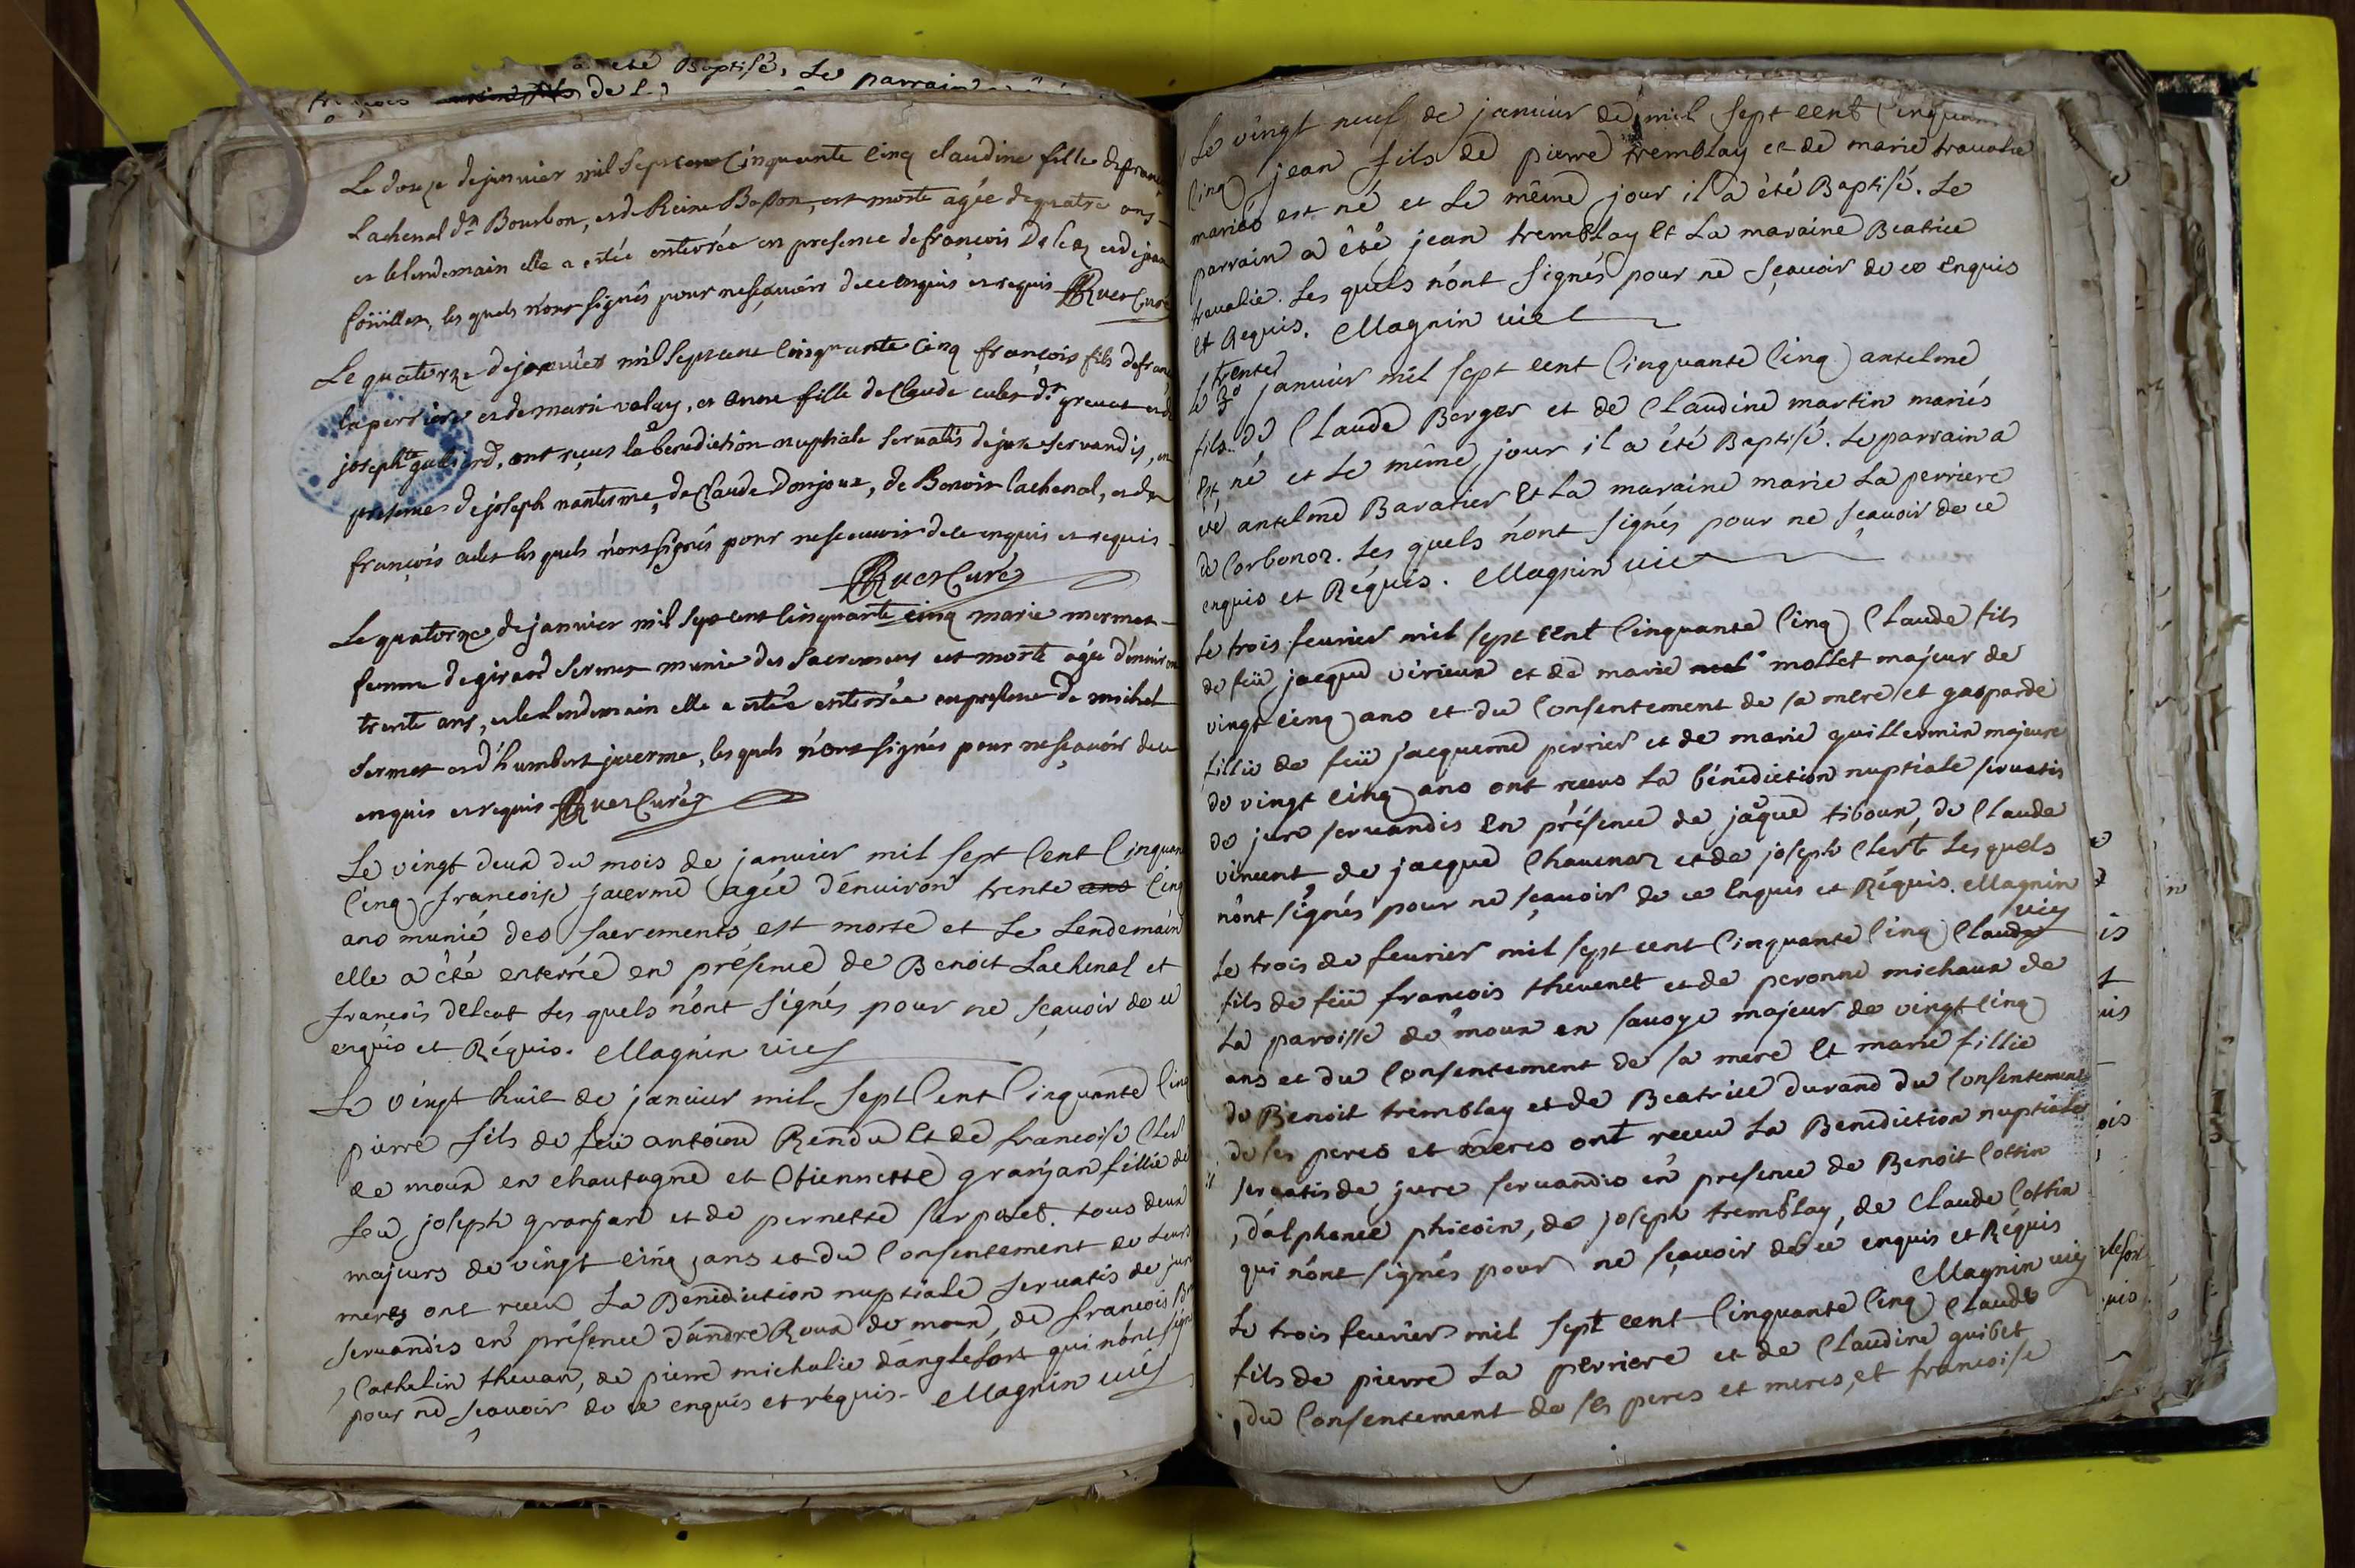 a été Baptisé, Le parrain
de
Le douze de janvier mil sept cent cinquante cinq claudine fille de
Lachenal dt Bourbon, et de Reine Basson, est morte agée de quatre ans
et le lendemain elle a estée enterrée en presence de françois et de
les quels n'ont signés pour ne sçavoir de ce enquis et requis Ruer Curé
Le quatorze de janvier mil sept cent cinquante cinq françois fils de
laperriere et de marie valay, et anne fille de Claude culet dt grevat et de
josephte ont reçus la benediction nuptiale servatis de jure servandis, en
presence de joseph nanterme, de Claude Donjoux, de Benoit lachenal, et de
françois culet les quels n'ont signés pour ne sçavoir de ce enquis et requis
Ruer Curé
Le quatorze de janvier mil sept cent cinquante cinq marie mermet
femme de girard sermet munie des sacremens est morte agée d'environ
trente ans, et le lendemain elle a estée enterrée en presence de michel
sermet et d'humbert juerme, les quels n'ont signés pour ne sçavoir de ce
enquis et requis Ruer Curé
Le vingt deux du mois de janvier mil sept Cent Cinquan
Cinq francoise juerme agée d'environ trente ans Cinq
ans munie des sacrements est morte et Le Lendemain
elle a été enterrée en présence de Benoit Lachenal et
francois delcat Les quels n'ont signés pour ne sçavoir de ce
enquis et Réquis. Magnin vic
Le vingt huit de janvier mil sept Cent Cinquante Cinq
pierre fils de feu antoine Rendu et de francoise Cler
de moux en chautagne et Etiennette granjan fillie de
feu joseph granjan et de pernette serpolet. tous deux
majeurs de vingt cinq ans et du Consentement de Leurs
meres ont receu La Bénédiction nuptiale servatis de jure
servandis en présence d'andre Roux de moux, de francois
Cathelin thevan, de pierre michalie d'anglefort qui n'ont signé
pour ne sçavoir de ce enquis et réquis. Magnin vic
Le vingt neuf de janvier de mil sept cent Cinquan
Cinq jean fils de pierre tremblay et de marie travalie
mariés est né et Le même jour il a été Baptisé. Le
parrain a été jean tremblay Et La maraine Beatrice
travalie. Les quels n'ont signés pour ne sçavoir de ce Enquis
et Requis. Magnin vic
trente
Le 30 janvier mil sept cent Cinquante Cinq antelme
fils de Claude Berger et de Claudine martin mariés
Est né et Le même jour il a été Baptisé. Le parrain a
été antelme Baratier Et La maraine marie La perriere
de Corbonoz. Les quels n'ont signés pour ne sçavoir de ce
enquis et Réquis. Magnin vic
Le trois fevrier mil sept cent Cinquante Cinq Claude fils
de feü jacque virieux et de marie mollet majeur de
vingt cinq ans et du Consentement de sa mere et gasparde
fillie de feü jacqueme perrier et de marie guillermin majeure
de vingt cinq ans ont receus La bénédiction nuptiale servatis
de jure servandis En présence de jâque tiboux, de Claude
vincent, de jacque Chavenaz et de joseph Clert Les quels
n'ont signés pour ne sçavoir de ce Enquis et Réquis. Magnin
vic
Le trois de fevrier mil sept cent Cinquante Cinq Claude
fils de feü francois thevenet et de peronne michaux de
La paroisse de moux en savoye majeur de vingt Cinq
ans et du Consentement de sa mere Et marie fillie
de Benoit tremblay et de Beatrice durand du Consentement
de ses peres et meres ont receu La Benediction nuptiale
servatis de jure servandis en presence de Benoit Cottin
d'alphence phicoin, de joseph tremblay, de Claude Cottin
qui n'ont signés pour ne sçavoir de ce enquis et Réquis
Magnin vic
Le trois fevrier mil sept cent Cinquante Cinq Claude
fils de pierre La perriere et de Claudine guibet
du Consentement de ses peres et meres, et francoise